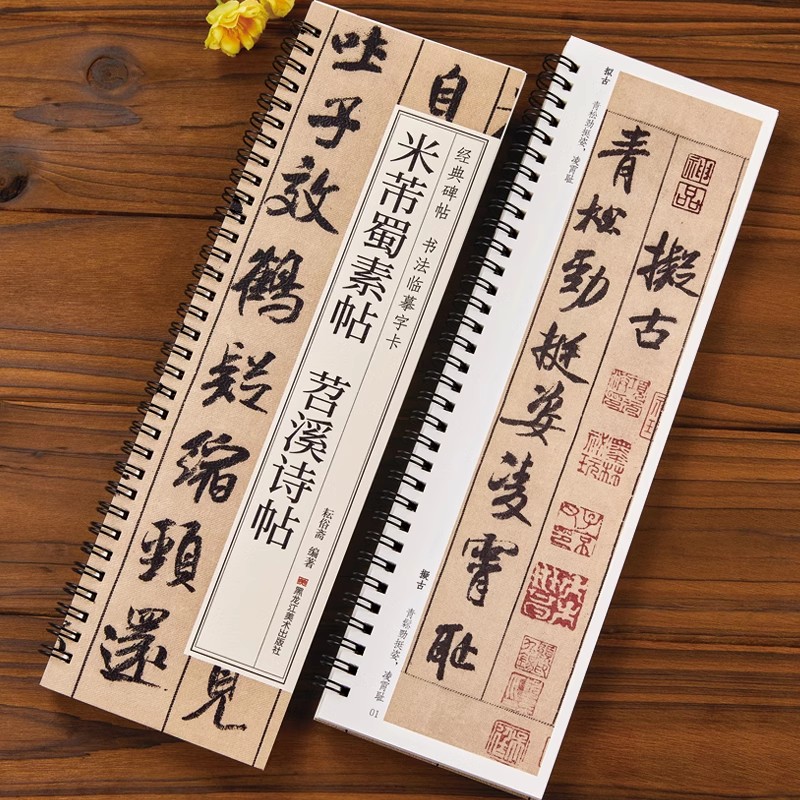 自
見
吐子效鶴疑縮頸還
经典碑帖 书法临摹字卡
米芾蜀素帖 苕溪诗帖
耘俗斋 编著
黑龙江美术出版社
神品
擬古
青松勁挺姿凌霄耻
拟古 青松劲挺姿，凌霄耻
擬古 青松勁挺姿，凌霄耻
01